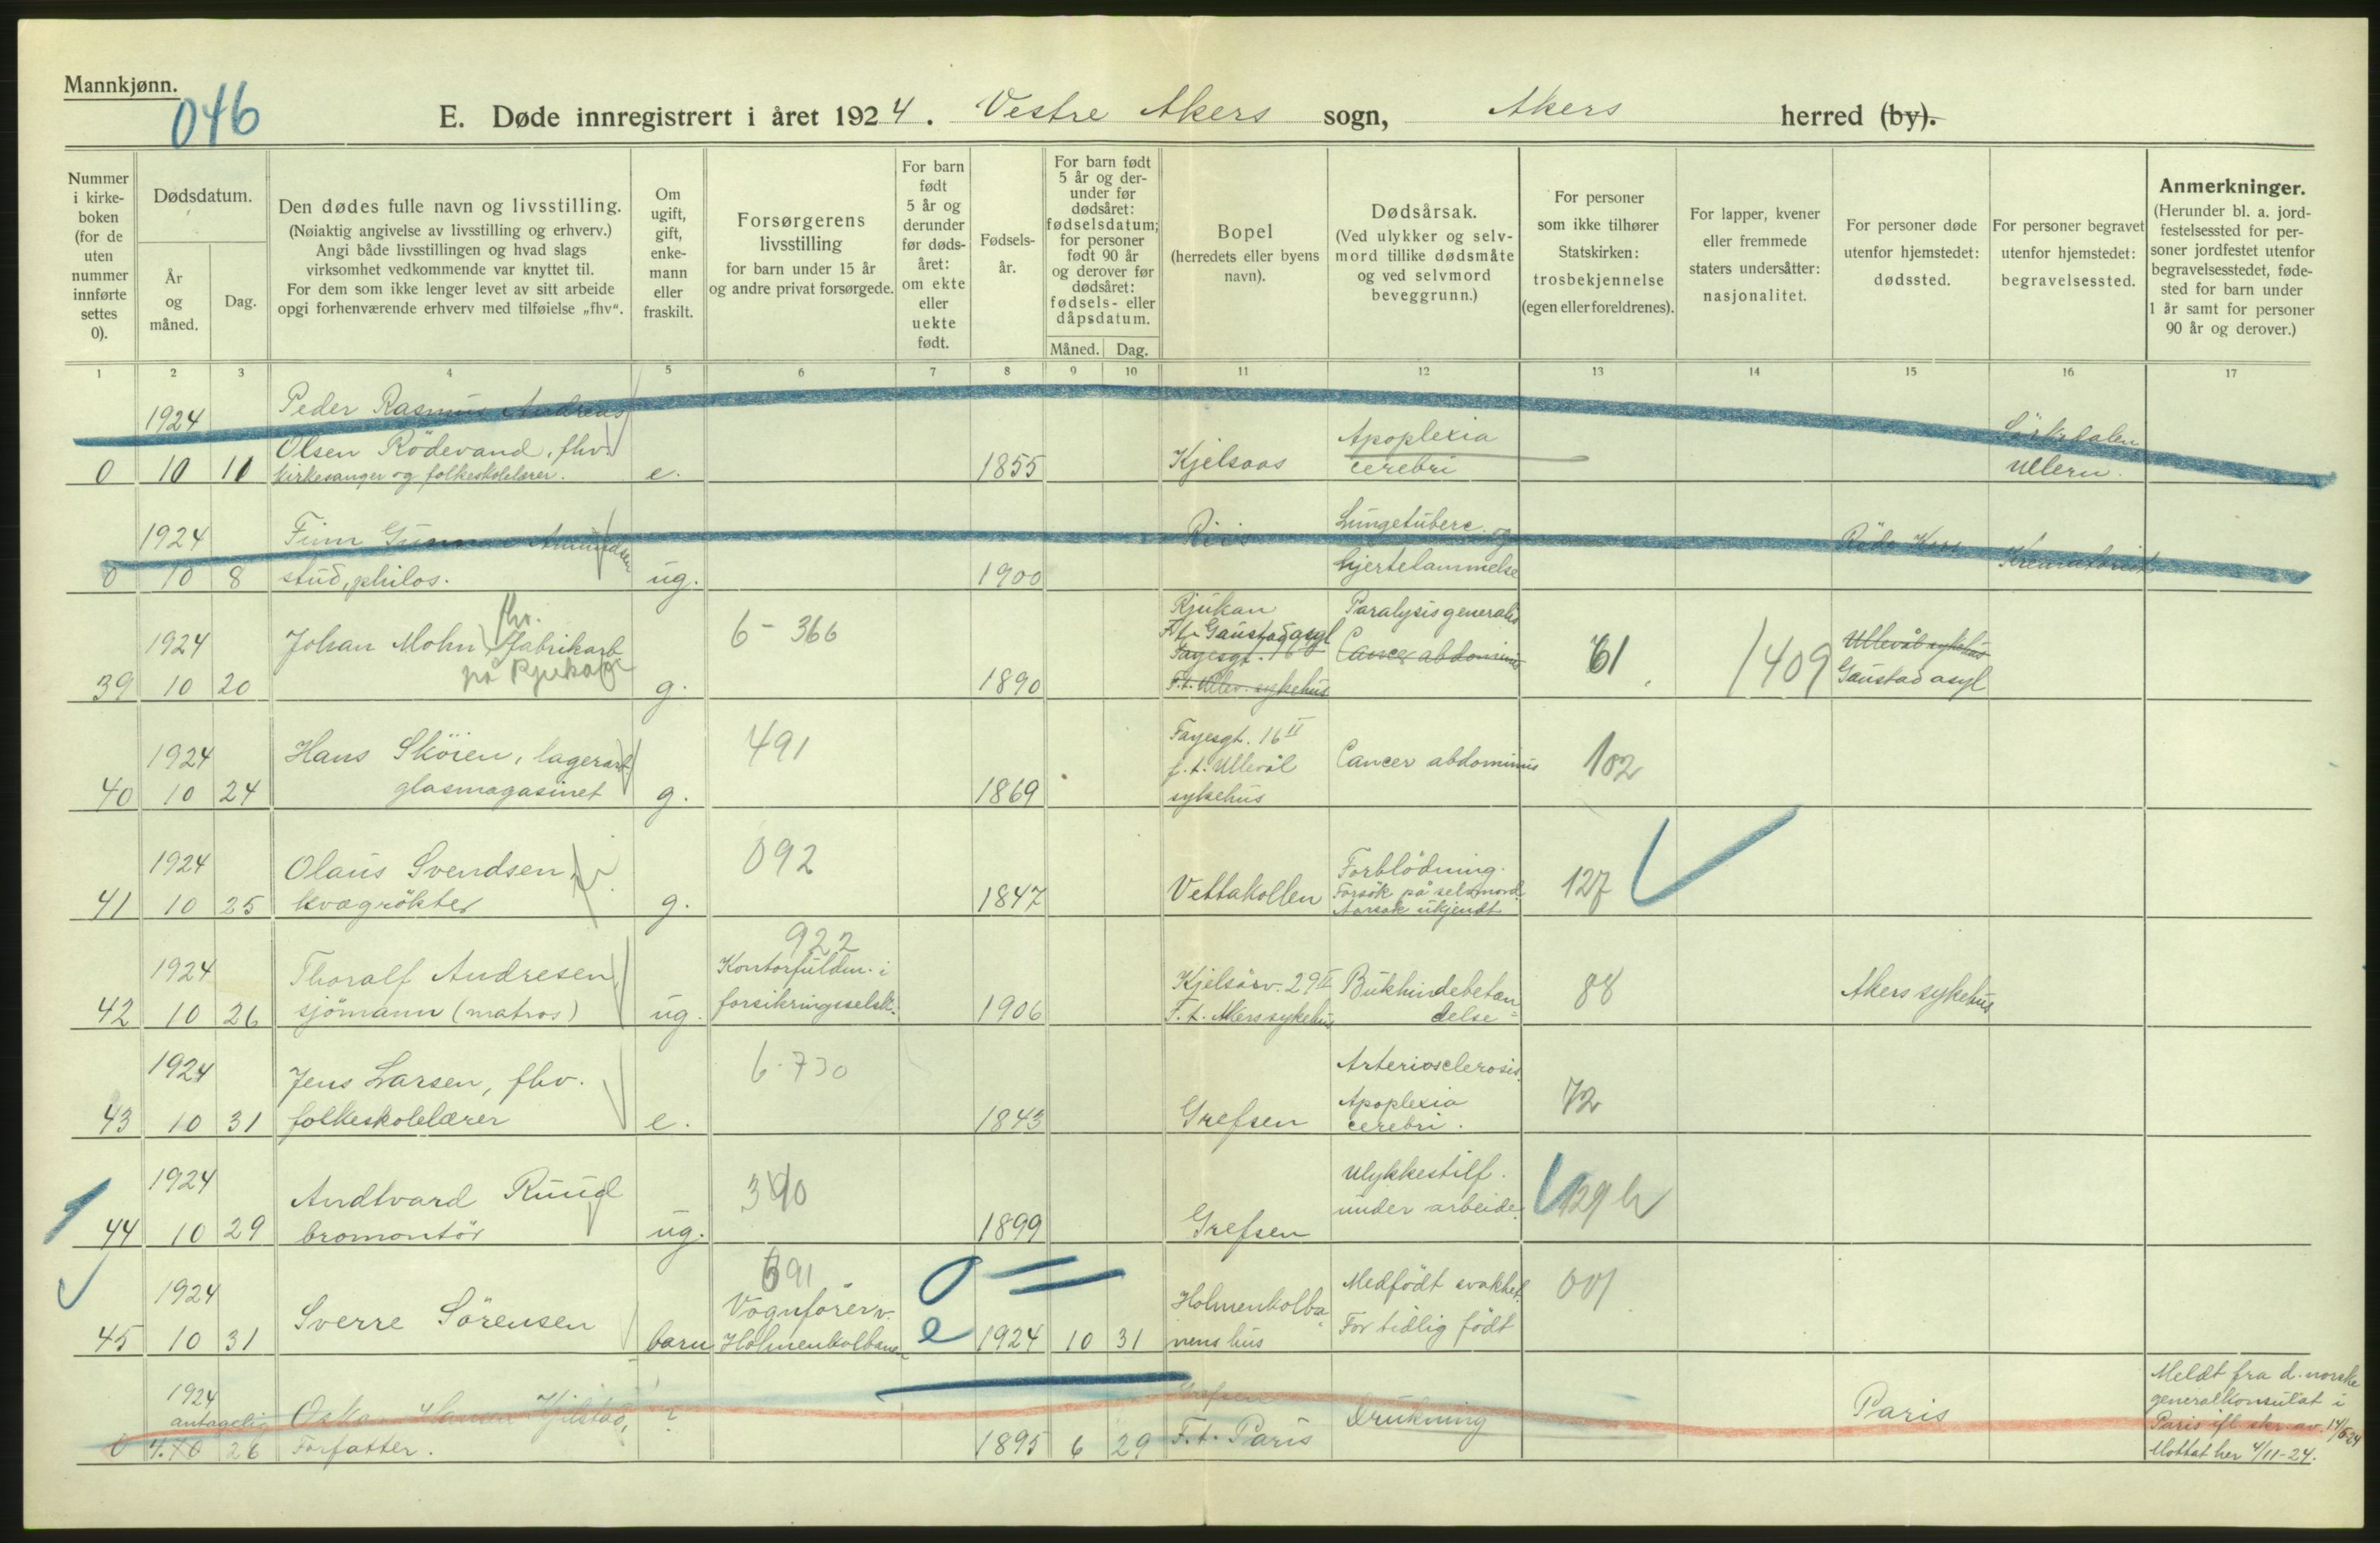 Mannkjønn.
046
E. Døde innregistrert i året 1924. Vestre Akers sogn, Akers herred (by).
Nummer i kirke-boken (for de uten nummer innførte settes 0).
Dødsdatum.
År og måned.
Dag.
Den dødes fulle navn og livsstilling.
(Nøiaktig angivelse av livsstilling og erhverv.)
Angi både livsstillingen og hvad slags
virksomhet vedkommende var knyttet til.
For dem som ikke lenger levet av sitt arbeide
opgi forhenværende erhverv med tilføielse „fhv“.
Om ugift, gift, enke-mann eller fraskilt.
Forsørgerens livsstilling
for barn under 15 år
og andre privat forsørgede.
For barn født 5 år og derunder før døds-året: om ekte eller uekte født.
Fødsels-år.
For barn født 5 år og der-under før dødsåret: fødselsdatum; for personer født 90 år og derover før dødsåret: fødsels- eller dåpsdatum.
Måned. Dag.
Bopel
(herredets eller byens navn).
Dødsårsak.
(Ved ulykker og selv-mord tillike dødsmåte og ved selvmord beveggrunn.)
For personer som ikke tilhører Statskirken: trosbekjennelse (egen eller foreldrenes).
For lapper, kvener eller fremmede staters undersåtter: nasjonalitet.
For personer døde utenfor hjemstedet: dødssted.
For personer begravet utenfor hjemstedet: begravelsessted.
Anmerkninger.
(Herunder bl. a. jord-festelsessted for per-soner jordfestet utenfor begravelsesstedet, føde-sted for barn under 1 år samt for personer 90 år og derover.)
1 2 3 4 5 6 7 8 9 10 11 12 13 14 15 16 17
1924 Peder Rasmus Andreas
Olsen Rödevand, fhv. Apoplexia Sörkedalen
0 10 11 kirkesanger og folkeskolelærer. e. 1855 Kjelsaas cerebri Ullern.
1924 Finn Gunnar Amundsen Riis Lungetuberc. og Röde Kors Krematoriet
0 10 8 stud. philos. ug. 1900 hjertelammelse
fhv. Rjukan Paralysis generalis
1924 Johan Mohn, fabrikarb. 6 - 366 F.t. Gaustad asyl Ullevål sykehus
på Rjukan Fayesgt. 16 Cancer abdominis 61 1409
39 10 20 g. 1890 F.t. Ullev. sykehus Gaustad asyl
1924 Hans Sköien, lagerarb. 491 Fayesgt. 16 II
glasmagasinet f.t. Ullevål Cancer abdominis 102
40 10 24 g. 1869 sykehus
1924 Olaus Svendsen, 092 Forblödning.
Forsök på selvmord. 127
41 10 25 kvægrökter g. 1847 Vettakollen Aarsak ukjendt
922
1924 Thoralf Andresen, Kontorfuldm. i Kjelsåsv. 29 II Bukhindebetæn 88 Akers sykehus
42 10 26 sjömann (matros) ug. forsikringsselsk. 1906 F.t. Akers sykehus delse
1924 Jens Larsen, fhv. 6-730 Arteriosclerosis.
Apoplexia 72
43 10 31 folkeskolelærer e. 1843 Grefsen cerebri.
1924 Andtvard Ruud 390 Ulykkestilf.
under arbeide. 129 b
44 10 29 bromontör ug. 1899 Grefsen
691
1924 Sverre Sörensen Vognförer v. 0 Holmenkolba Medfödt svakhet. 001
45 10 31 barn Holmenkolbanen e 1924 10 31 nens hus For tidlig födt
1924 Grefsen Meldt fra d. norske
antagelig ? Drukning Paris generalkonsulat i
Paris ifl. skr. av
0 4.10 26 Forfatter. 1895 6 29 F.t. Paris Mottat her 4/11-24.